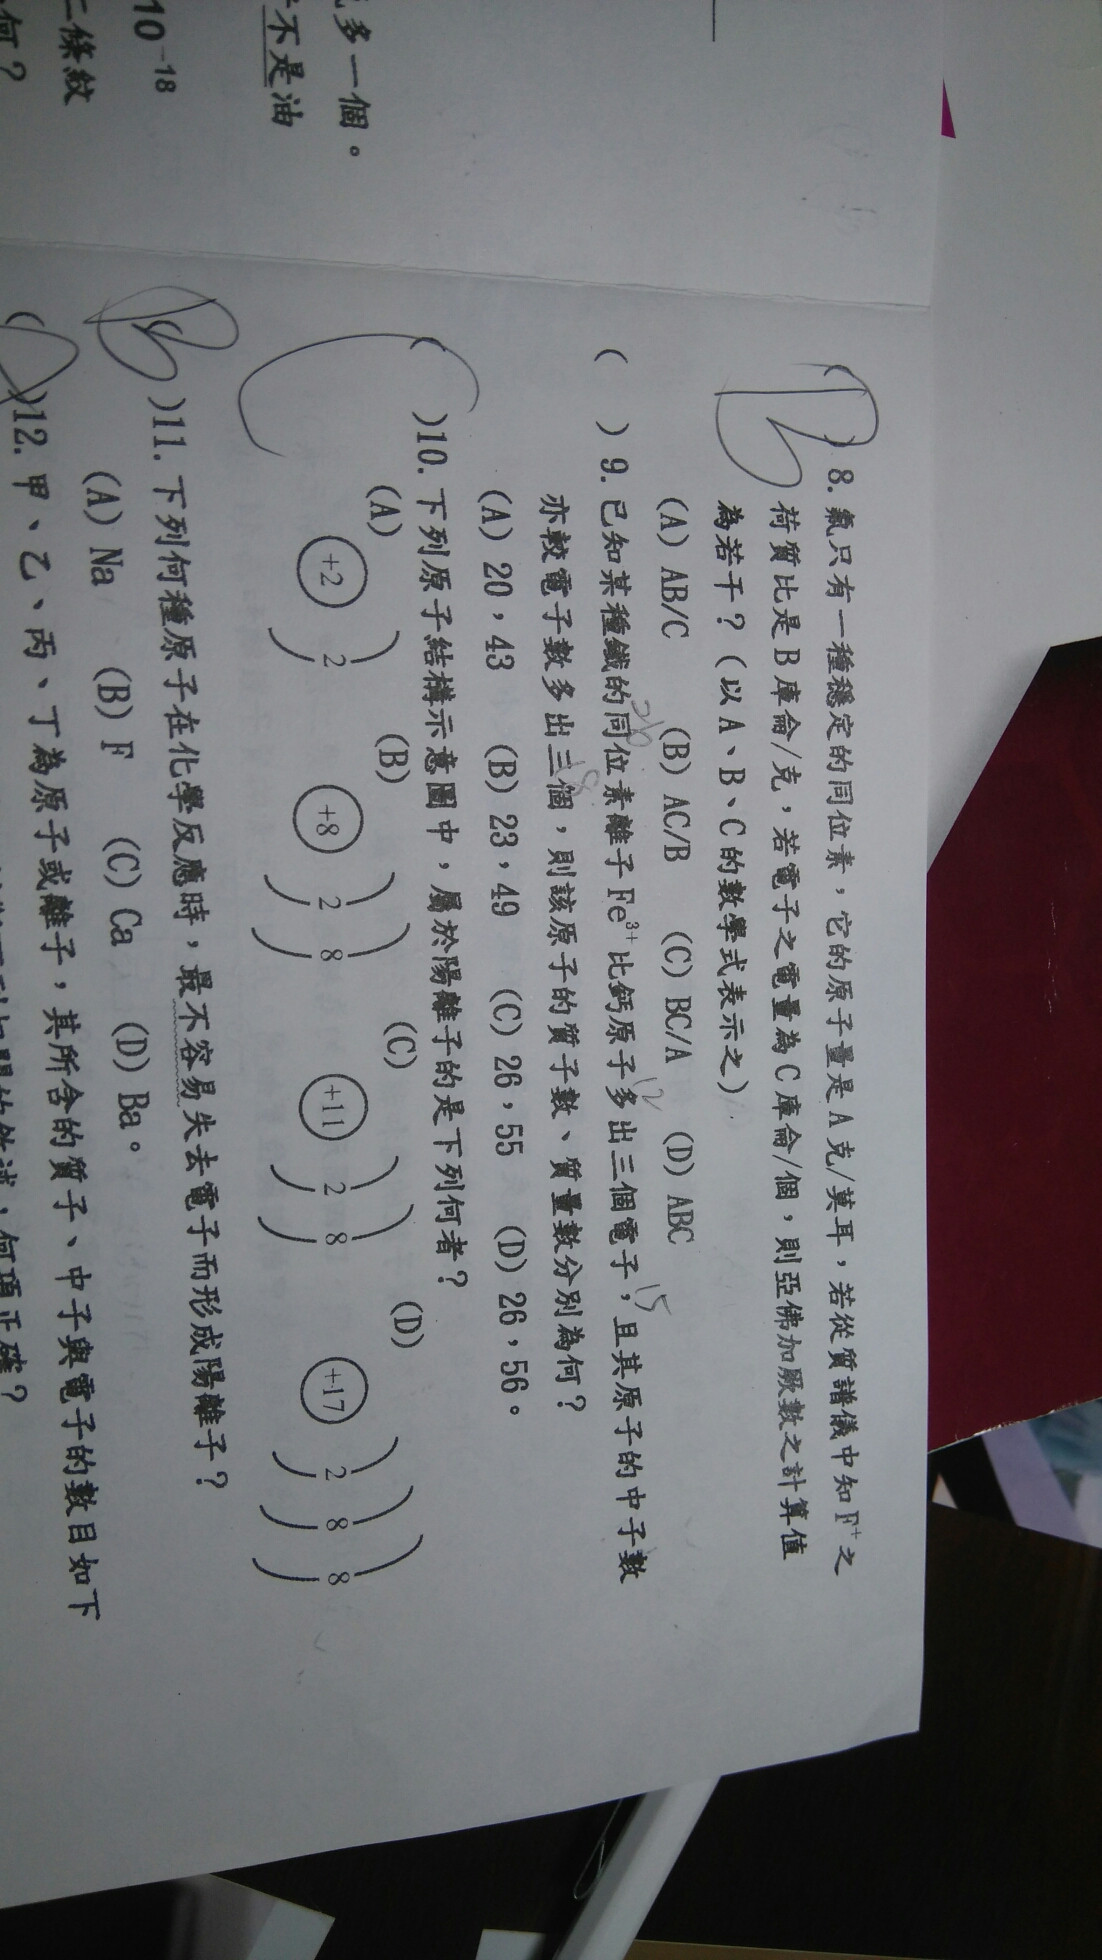 多一個。
不是油
10⁻¹⁸
條紋
何？
B
( )8. 氟只有一種穩定的同位素，它的原子量是A克/莫耳，若從質譜儀中知F⁺之
荷質比是B庫侖/克，若電子之電量為C庫侖/個，則亞佛加厥數之計算值
為若干？(以A、B、C的數學式表示之)
(A) AB/C (B) AC/B (C) BC/A (D) ABC
( )9. 已知某種鐵的同位素離子Fe³⁺比鈣原子多出三個電子，且其原子的中子數
26
15
亦較電子數多出三個，則該原子的質子數、質量數分別為何？
(A) 20，43 (B) 23，49 (C) 26，55 (D) 26，56。
( )10. 下列原子結構示意圖中，屬於陽離子的是下列何者？
(A) (B) (C) (D)
+2 2 +8 2 8 +11 2 8 +17 2 8 8
B
)11. 下列何種原子在化學反應時，最不容易失去電子而形成陽離子？
(A) Na (B) F (C) Ca (D) Ba。
( )12. 甲、乙、丙、丁為原子或離子，其所含的質子、中子與電子的數目如下
何項正確？